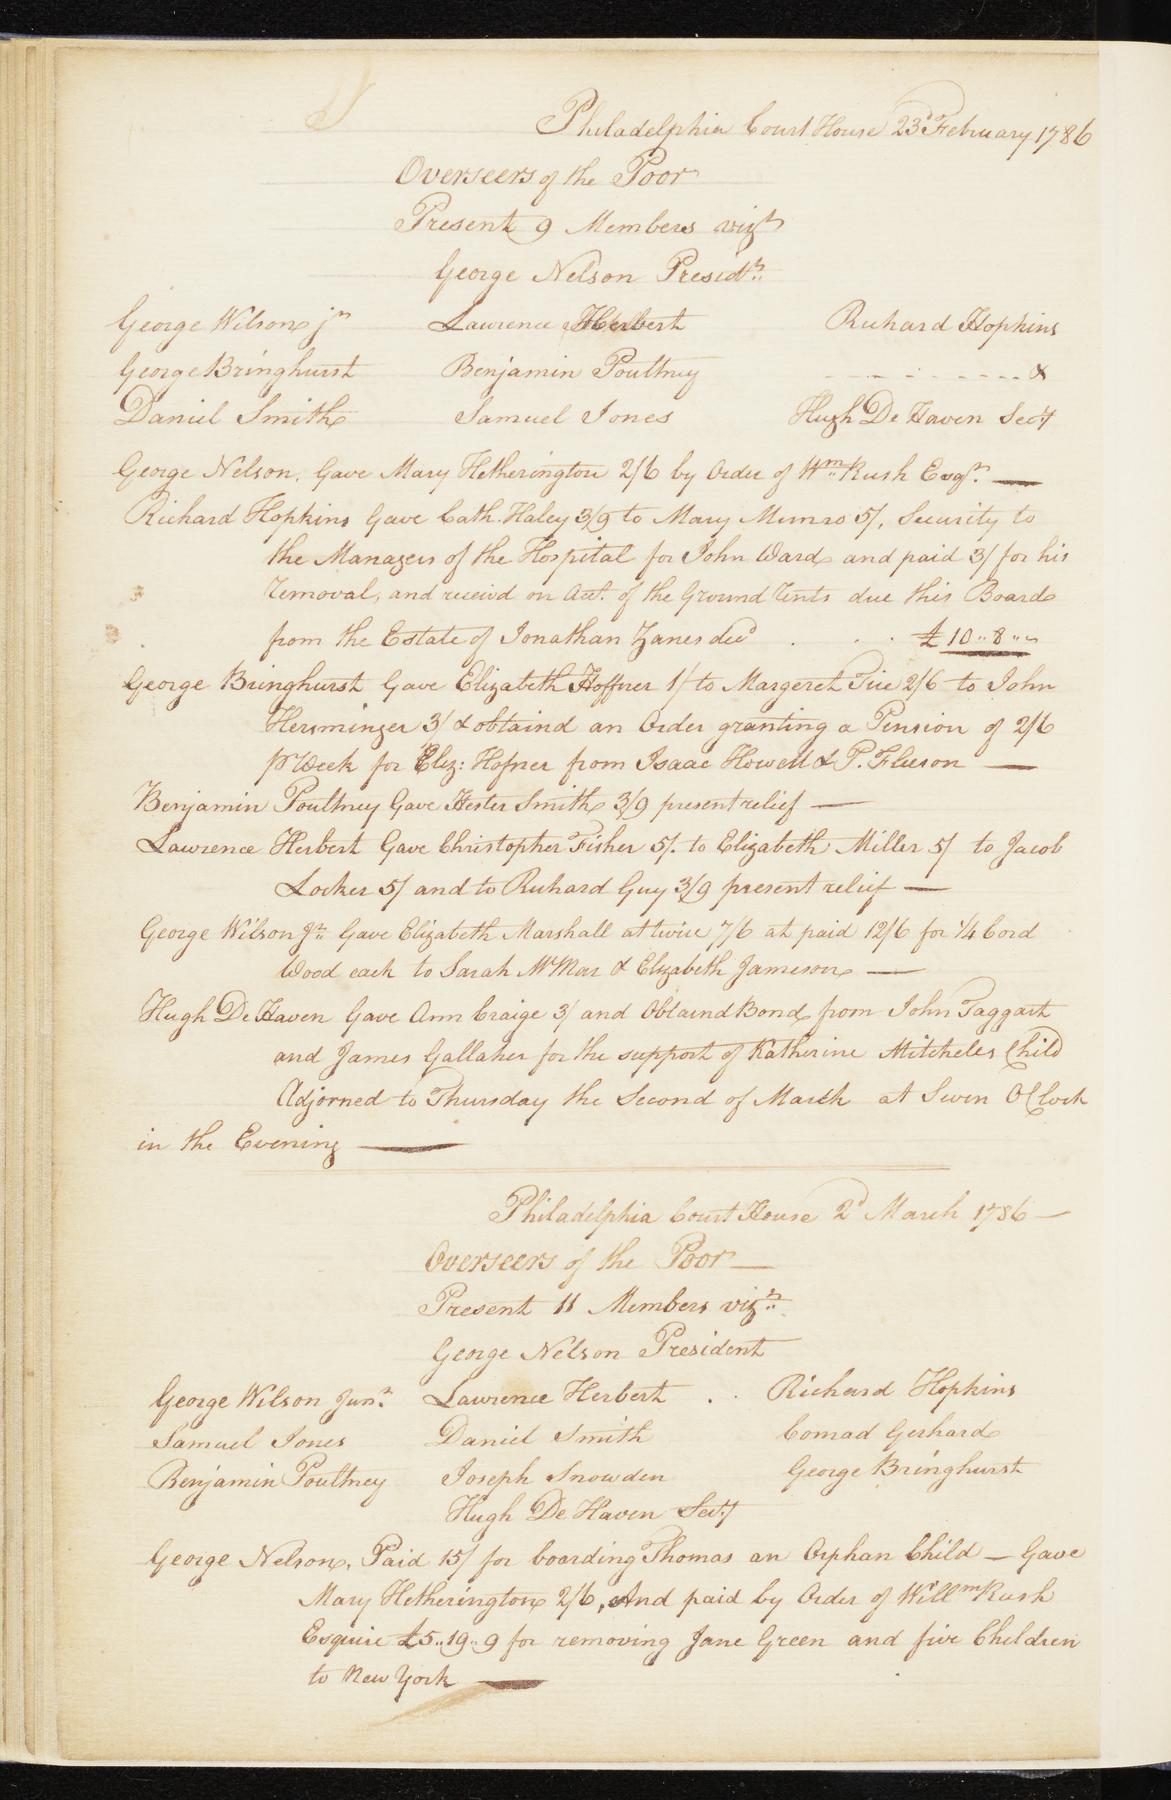 Philadelphia Court House 23d February 1786
Overseers of the Poor
Present 9 Members vizt
George Nelson Presidt
George Wilson jr Lawrence Herbert Richard Hopkins
George Bringhurst Benjamin Poultney - - - - - - - - &
Daniel Smith Samuel Jones Hugh De Haven Secy
George Nelson, Gave Mary Hetherington 2/6 by Order of Wm Rush Esqr. —
Richard Hopkins Gave Cath. Haley 3/9 to Mary Munro 5/, Security to
the Managers of the Hospital for John Ward and paid 3/ for his
removal, and receivd on Acct. of the Ground rents due this Board
from the Estate of Jonathan Zanes decd . . . £ 10 .. 8 .. ~
George Bringhurst Gave Elizabeth Hoffner 1/ to Margeret Tice 2/6 to John
Hersminger 3/ & obtaind an Order granting a Pension of 2/6
pr Week for Eliz: Hofner from Isaac Howell & P. Fleeson —
Benjamin Poultney Gave Hester Smith 3/9 present relief —
Lawrence Herbert Gave Christopher Fisher 5/. to Elizabeth Miller 5/ to Jacob
Locker 5/ and to Richard Guy 3/9 present relief —
George Wilson Jr. Gave Elizabeth Marshall at twice 7/6 at paid 12/6 for 1/4 Cord
Wood each to Sarah McMar & Elizabeth Jameson —
Hugh De Haven Gave Ann Craige 3/ and Obtaind Bond from John Taggart
and James Gallaher for the support of Katherine Mitcheles Child
Adjorned to Thursday the Second of March at Seven OClock
in the Evening —
Philadelphia Court House 2d March 1786 —
Overseers of the Poor —
Present 11 Members vizt.
George Nelson President
George Wilson Junr. Lawrence Herbert . . Richard Hopkins
Samuel Jones Daniel Smith Conrad Gerhard
Benjamin Poultney Joseph Snowden George Bringhurst
Hugh De Haven Secy
George Nelson, Paid 15/ for boarding Thomas an Orphan Child — Gave
Mary Hetherington 2/6, And paid by Order of Willm Rush
Esquire £5..19..9 for removing Jane Green and five Children
to New York —